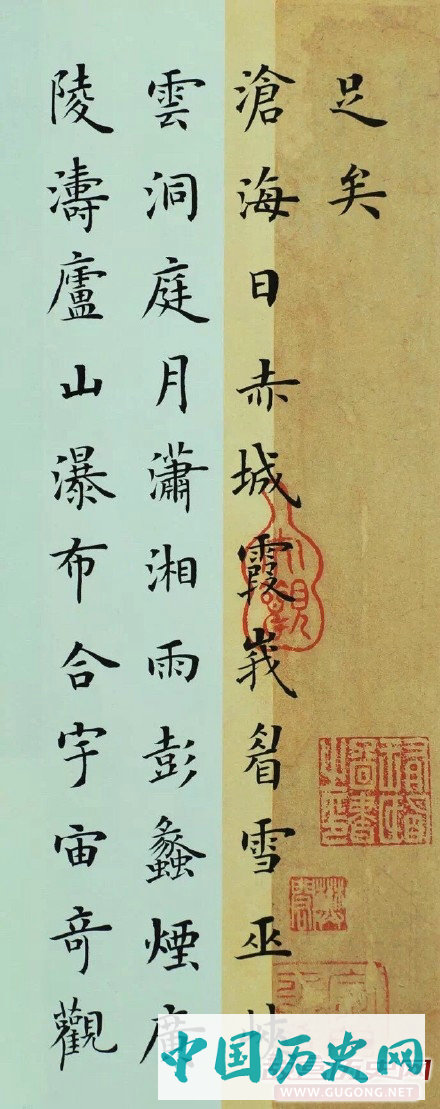 足矣
滄海日赤城霞峩眉雪巫峽
雲洞庭月瀟湘雨彭蠡煙廣
陵濤廬山瀑布合宇宙奇觀
中国历史网
WWW.GUGONG.NET